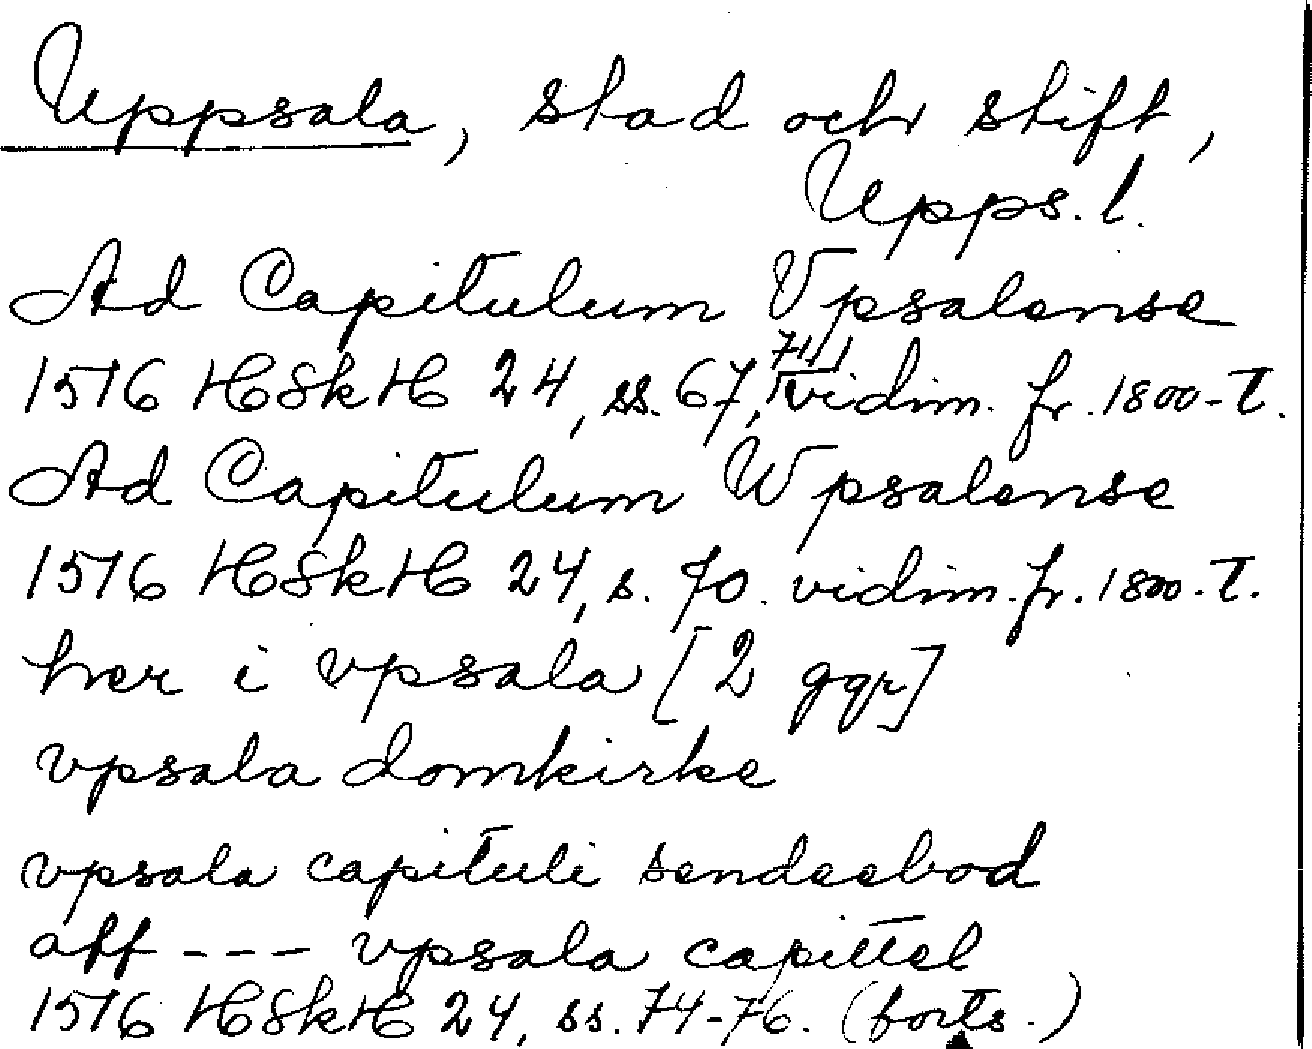 Uppsala, stad och stift,
Upps. l.
Ad Capitulum Vpsalense
1576 HSkH 24, ss. 67, 74, vidim. fr. 1800-t.
Ad Capitulum Wpsalense
1576 HSkH 24, s. 70. vidim. fr. 1800-t.
her i vpsala [2 ggr]
vpsala domkirke
vpsala capituli sendeebod
aff --- vpsala capittel
1576 HSkH 24, ss. 74-76. (forts.)